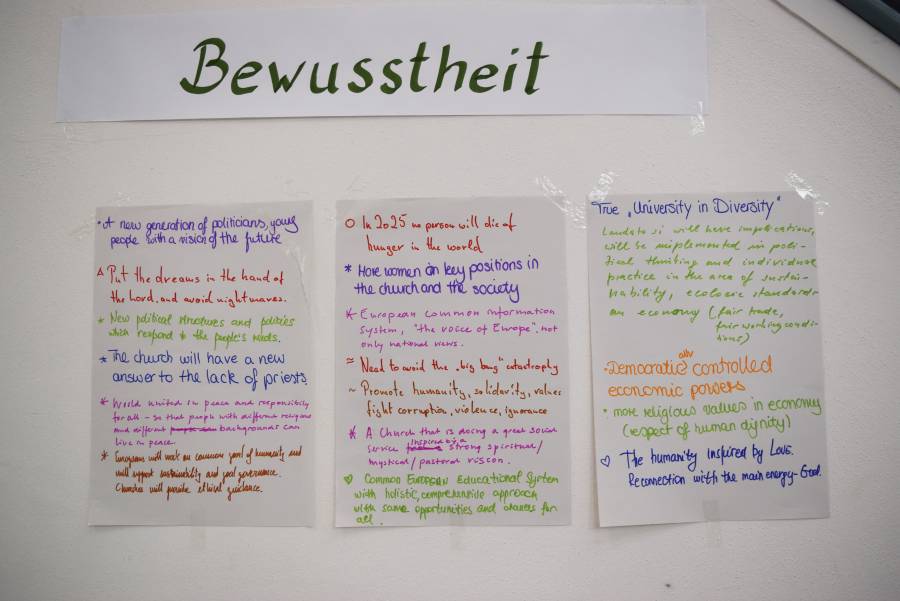 Bewusstheit
• A new generation of politicians, young
people with a vision of the future
Put the dreams in the hand of
the Lord. and avoid nightmares.
* New political structures and policies
which respond to the people's needs.
* The church will have a new
answer to the lack of priests.
* World united in peace and responsibility
for all - so that people with different religions
and different backgrounds can
live in peace.
* Europeans will work on common goal of humanity and
will support sustainability and good governance.
Churches will provide ethical guidance.
O In 2025 no person will die of
hunger in the world
* More women on key positions in
the church and the society
* European common information
system, "the voice of Europe". not
only national views.
≈ Need to avoid the „big bang" catastrophy
~ Promote humanity, solidarity, values
fight corruption, violence, ignorance
* A Church that is doing a great social
service inspired by a strong spiritual/
mystical/pastoral vision.
♡ Common European Educational System
with holistic, comprehensive approach
with same opportunities and chances for
all.
True „University in Diversity"
Laudato si will have implications,
will be implemented in poli-
tical thinking and individual
practice in the area of sustai-
nability, ecologic standards
an economy (fair trade,
fair working condi-
tions)
• Democratic ally controlled
economic powers
* more religious values in economy
(respect of human dignity)
♡ The humanity inspired by Love.
Reconnection with the main energy - God.